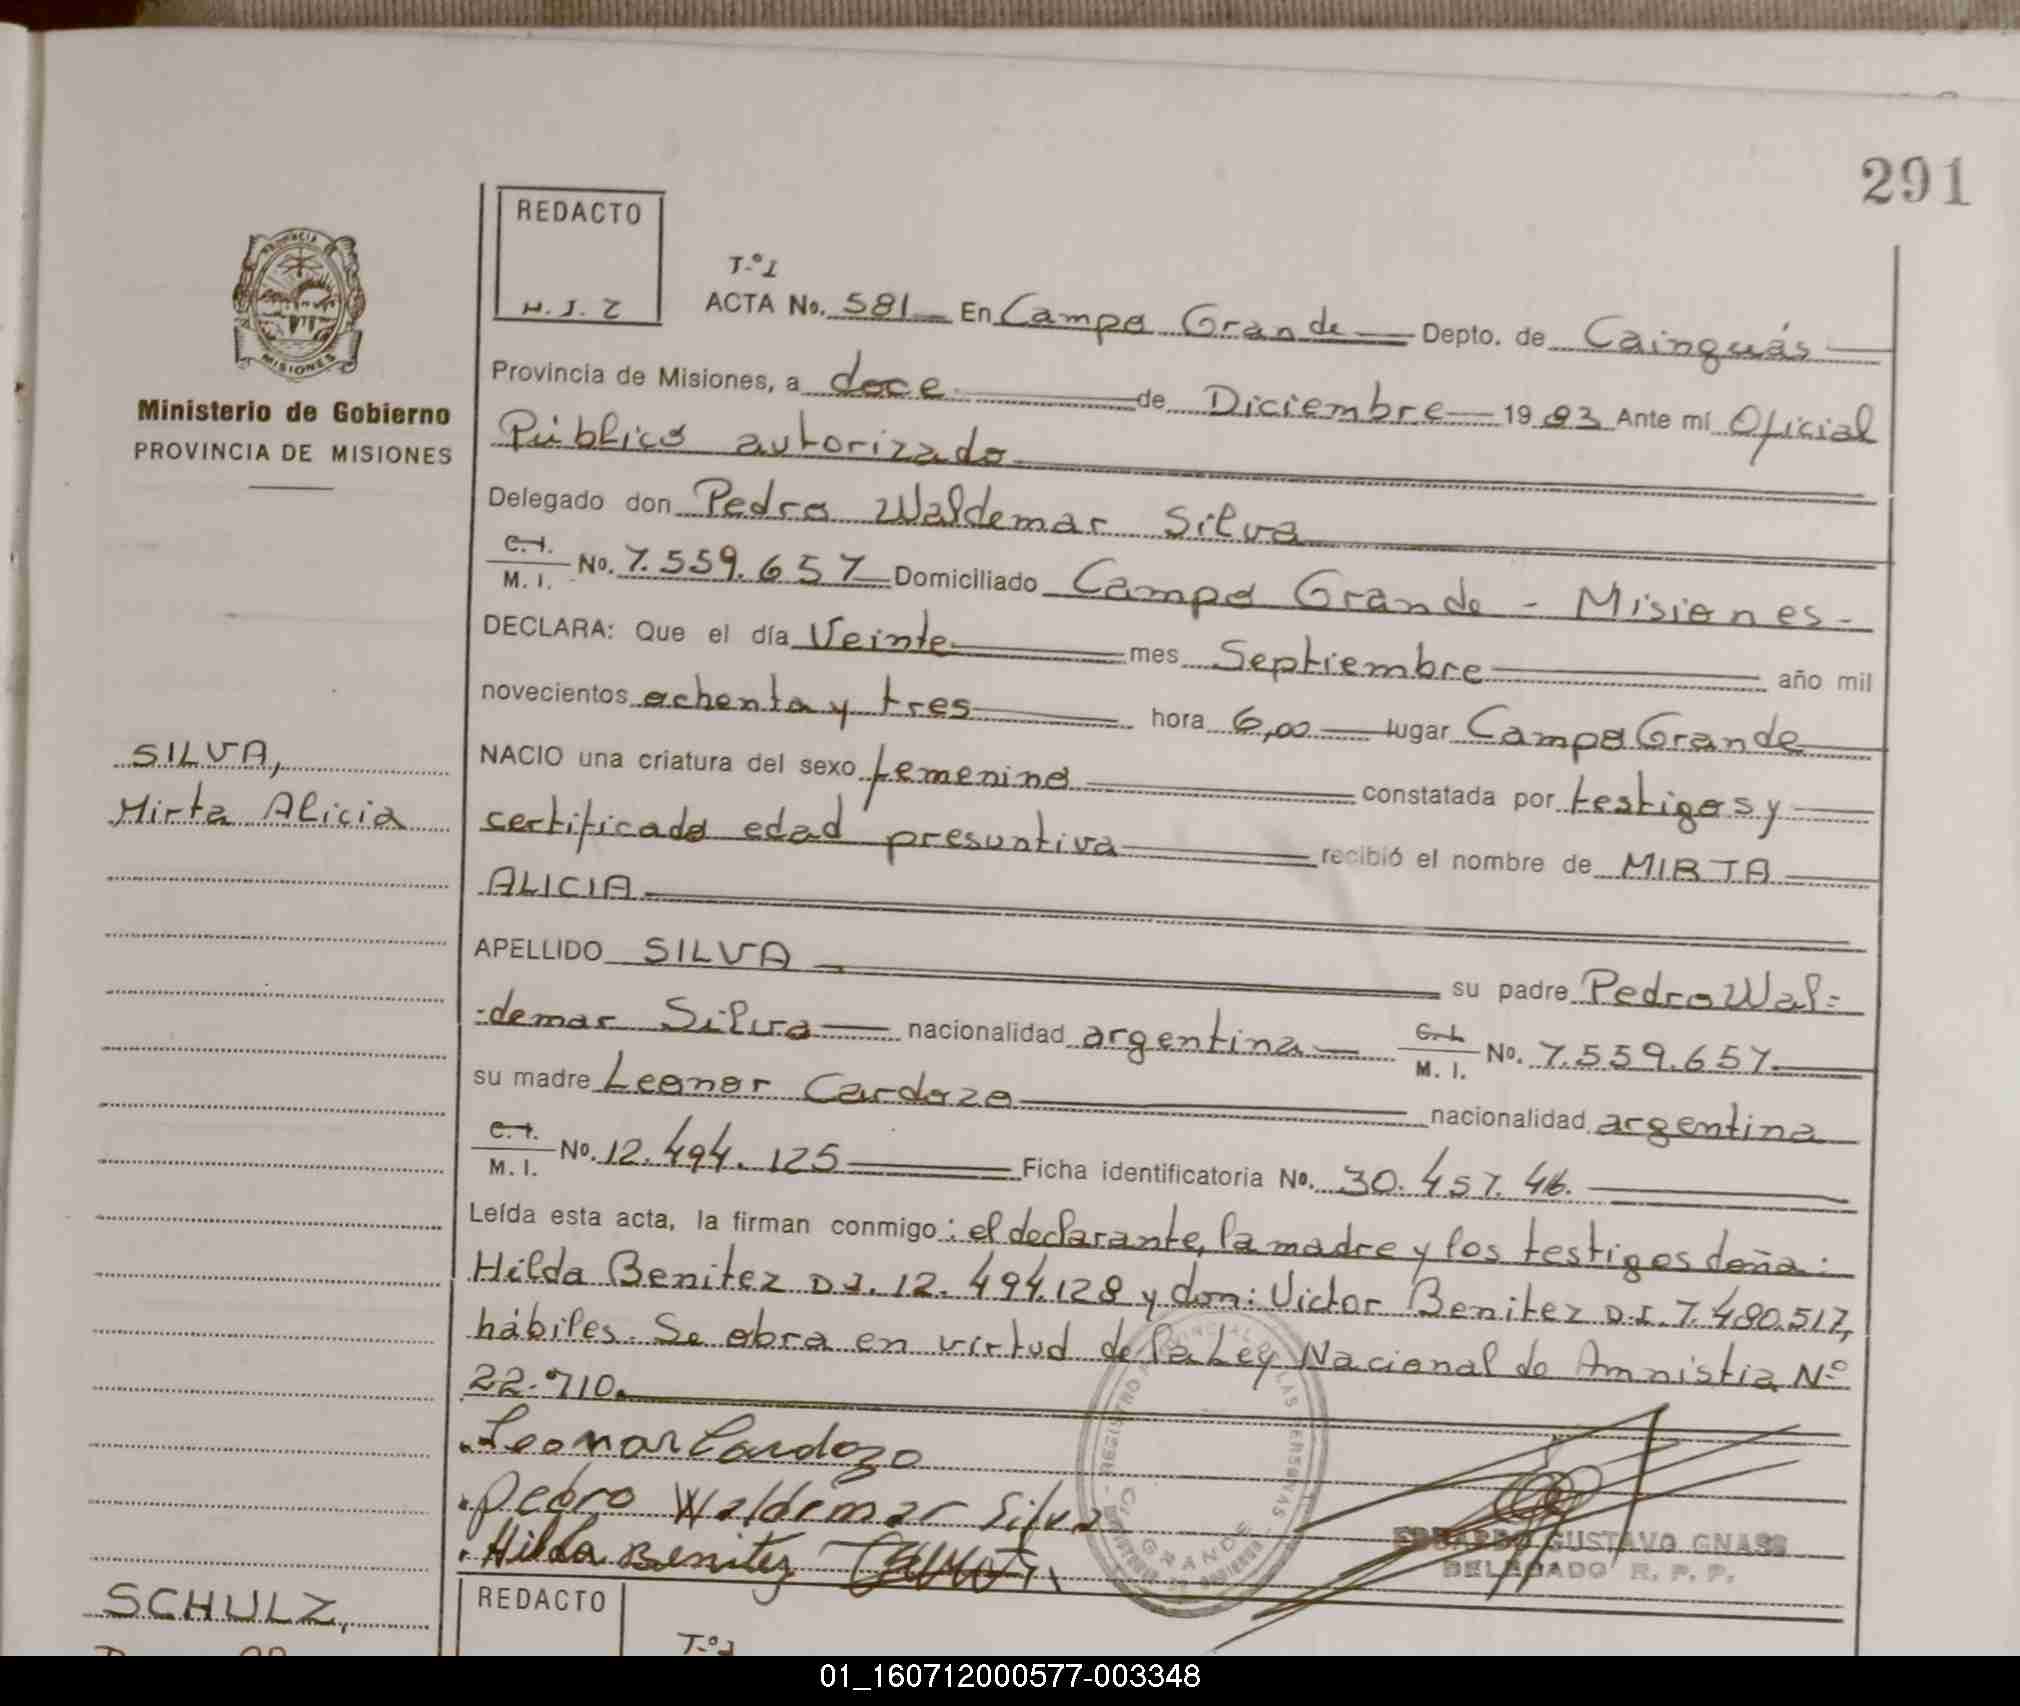 291
REDACTO
H. J. Z
T.º 1
ACTA No. 581 En Campo Grande Depto. de Cainguás
Provincia de Misiones, a doce de Diciembre 1983 Ante mí Oficial
Público autorizado
Delegado don Pedro Waldemar Silva
C. I. / M. I. No. 7.559.657 Domiciliado Campo Grande - Misiones-
DECLARA: Que el día Veinte mes Septiembre año mil
novecientos ochenta y tres hora 6,00 lugar Campo Grande
NACIO una criatura del sexo femenino constatada por testigos y
certificado edad presuntiva recibió el nombre de MIRTA
ALICIA
APELLIDO SILVA su padre Pedro Wal=
=demar Silva nacionalidad argentina C. I. / M. I. No. 7.559.657
su madre Leonor Cardozo nacionalidad argentina
C. I. / M. I. No. 12.494.125 Ficha identificatoria No. 30.457.46.
Leída esta acta, la firman conmigo: el declarante, la madre y los testigos doña:
Hilda Benitez D.I. 12.494.128 y don: Victor Benitez D.I. 7.480.517,
hábiles. Se obra en virtud de la Ley Nacional de Amnistia Nº
22.710.
Leonor Cardozo
Pedro Waldemar Silva
Hilda Benitez
EDUARDO GUSTAVO GNASS
DELEGADO R. P. P.
REGISTRO PROVINCIAL DE LAS PERSONAS
GRANDE
PROVINCIA
MISIONES
Ministerio de Gobierno
PROVINCIA DE MISIONES
SILVA,
Mirta Alicia
SCHULZ,
REDACTO
T.º 1
01_160712000577-003348